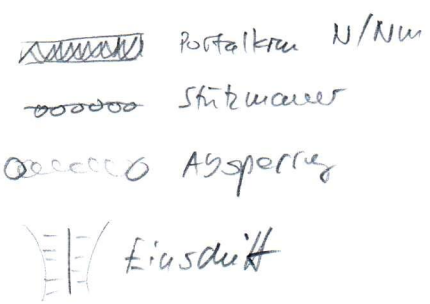 Portalkran N/Nm
Stützmauer
Absperrg
Einschnitt